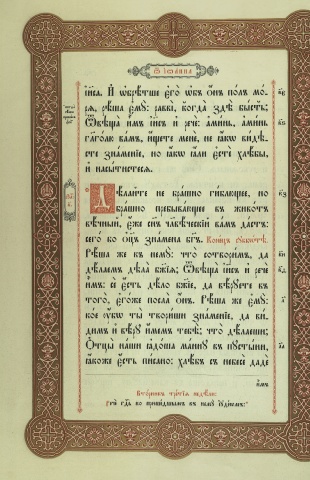 Ѿ іѡанна
іи҃са. И҆ ѡ҆брѣтше є҆го̀ ѡ҆б̾ ѻ҆нъ полъ мо-
рѧ, рѣша є҆мꙋ̀: раввѝ, когда̀ здѣ̀ бы́сть;
Ѿвѣща̀ и҆̀мъ і҆и҃съ и҆ речѐ: а҆ми́нь, а҆ми́нь
гл҃го́лю ва́мъ, и҆́щете менѐ, не ꙗ҆́кѡ видѣ́-
сте зна́менїе, но ꙗ҆́кѡ ꙗ҆́ли є҆стѐ хлѣ́бы,
и҆ насы́тистесѧ.
Дѣ́лайте не бра́шно ги́блющее, но
бра́шно пребыва́ющее въ живо́тъ
вѣ́чный, є҆́же сн҃ъ чл҃вѣ́ческїй ва́мъ да́стъ:
сего́ бо ѻ҆ц҃ъ зна́мена бг҃ъ. Коне́цъ сꙋббѡ́тѣ.
Рѣ́ша же къ немꙋ̀: что̀ сотвори́мъ, да
дѣ́лаемъ дѣла̀ бж҃їѧ; Ѿвѣща̀ і҆и҃съ и҆ речѐ
и҆̀мъ: сѐ є҆́сть дѣ́ло бж҃їе, да вѣ́рꙋете въ
того̀, є҆го́же посла̀ ѻ҆́нъ. Рѣ́ша же є҆мꙋ̀:
ко́е ᲂу҆̀бо ты̀ твори́ши зна́менїе, да ви́-
димъ и҆ вѣ́рꙋ и҆́мемъ тебѣ̀; что̀ дѣ́лаеши;
Ѻ҆тцы̀ на́ши ꙗ҆до́ша ма́ннꙋ въ пꙋсты́ни,
ꙗ҆́коже є҆́сть пи́сано: хлѣ́бъ съ небесѐ дадѐ
и҆̀мъ
Вто́рникъ тре́тїѧ недѣ́ли:
Речѐ гд҇ь ко прише́дшымъ къ немꙋ̀ і҆ꙋде́ѡмъ: